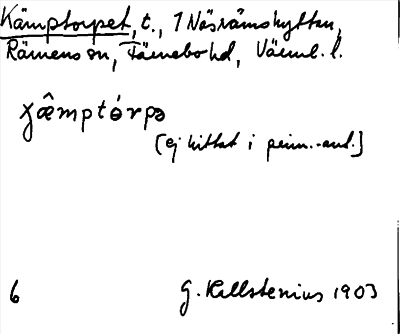 Kämptorpet, t., 1 Näsrämshyttan,
Rämens sn, Färnebo hd, Värml. l.
ɣæ̂mptórpə
[ej hittat i prim.-anl.]
6 G. Kallstenius 1903